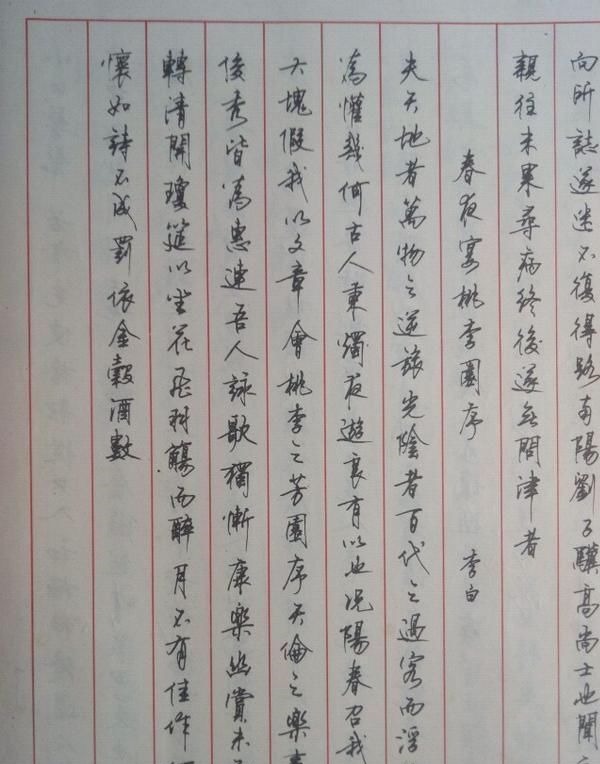 向所誌遂迷不復得路南陽劉子驥高尚士也聞
親往未果尋病終後遂無問津者
春夜宴桃李園序 李白
夫天地者萬物之逆旅光陰者百代之過客而浮
為懽幾何古人秉燭夜遊良有以也況陽春召我
大塊假我以文章會桃李之芳園序天倫之樂
俊秀皆為惠連吾人詠歌獨慚康樂幽賞未
轉清開瓊筵以坐花飛羽觴而醉月不有佳作
懷如詩不成罰依金穀酒數